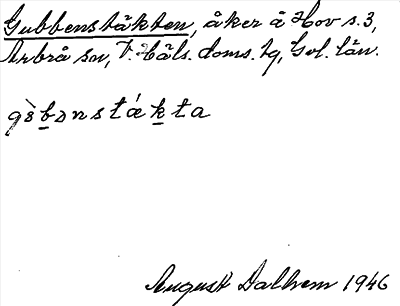 Gubbenstäkten, åker å Hov s. 3,
Arbrå sn, V. Häls. doms. tg, Gvl. län.
gȯ̀b̲ənstǽk̲ta
August Dalhem 1946